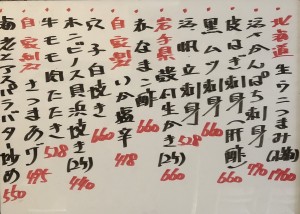 北海道 生ウニつまみ 1760
活〆かんぱち刺身 770
皮はぎ刺身(肝酢) 660
黒ムツ刺身 660
活帆立刺身 528
岩手県 殻付生かき(2ケ) 660
赤なまこ酢 660
自家製 いか塩辛 418
穴子白焼き 660
本ニビノス貝浜焼(2ケ) 440
牛モモ肉たたき 528
自家製 さつまあげ 495
海老とアボカドバター炒め 550